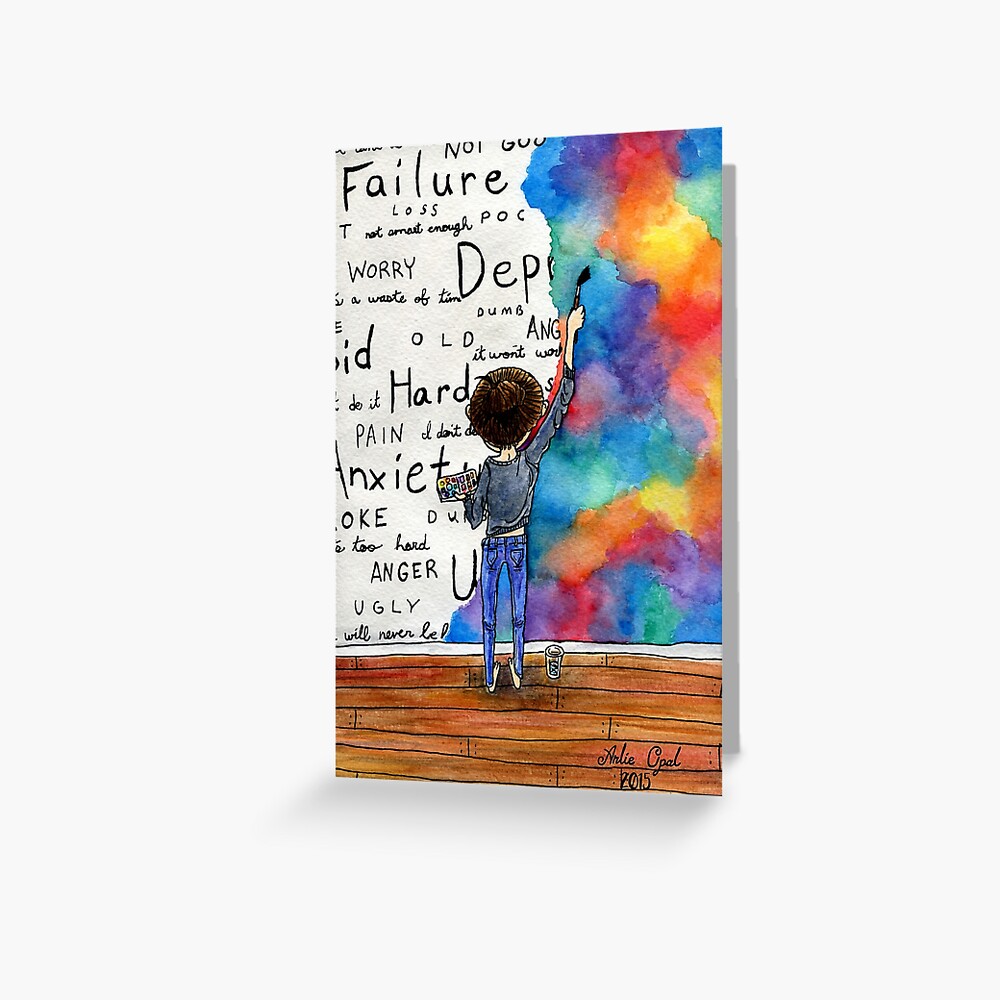 NOT GOO
Failure
LOSS
T not smart enough POC
WORRY Dep
s a waste of tim
DUMB
E OLD ANG
id it won't wor
t do it Hard s
PAIN I don't de
Anxiet
OKE DUM
s too hard
ANGER U
UGLY
will never be
Arlie Opal
2015